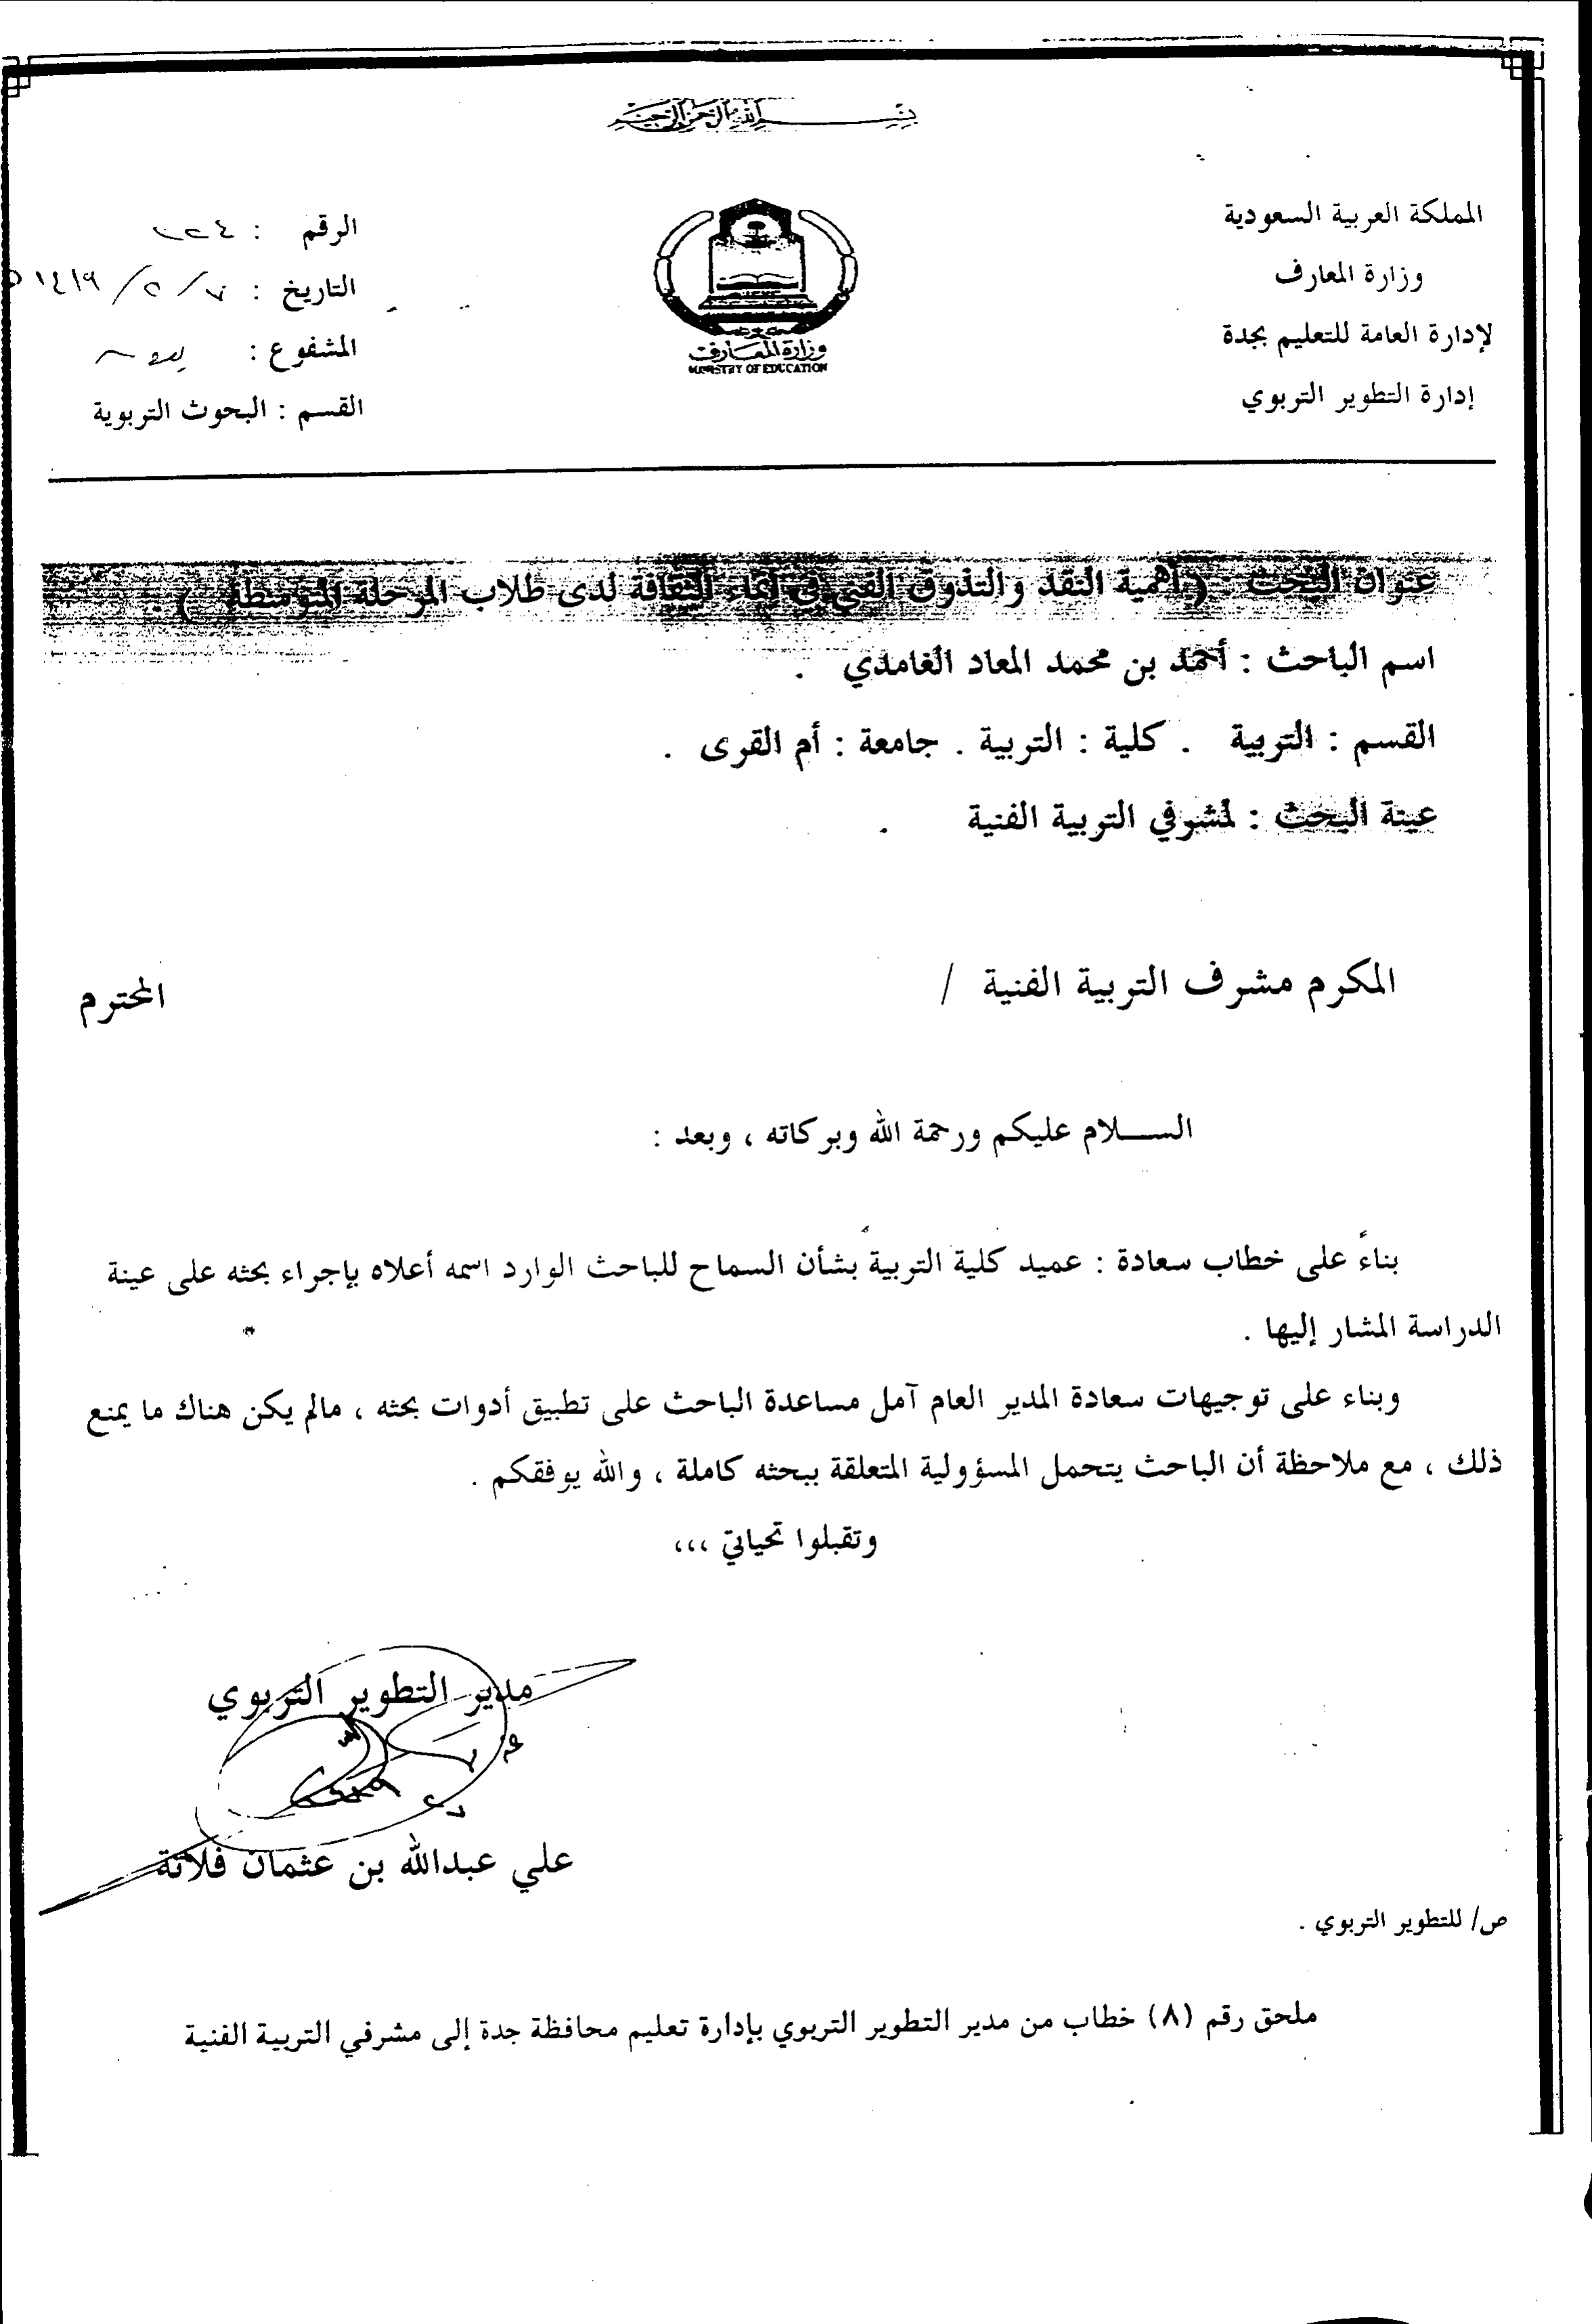 بسم الله الرحمن الرحيم
المملكة العربية السعودية
وزارة المعارف
لإدارة العامة للتعليم بجدة
إدارة التطوير التربوي
وزارة المعارف
MINISTRY OF EDUCATION
الرقم :
التاريخ : ٧ / ٢ / ١٤١٩ ه
المشفوع :
القسم : البحوث التربوية
عنوان البحث : ( أهمية النقد والتذوق الفني في إنماء الثقافة لدى طلاب المرحلة المتوسطة ) .
اسم الباحث : أحمد بن محمد المعاد الغامدي .
القسم : التربية . كلية : التربية . جامعة : أم القرى .
عينة البحث : لمشرفي التربية الفنية .
المكرم مشرف التربية الفنية / المحترم
الســـلام عليكم ورحمة الله وبركاته ، وبعد :
بناءً على خطاب سعادة : عميد كلية التربية بشأن السماح للباحث الوارد اسمه أعلاه بإجراء بحثه على عينة
الدراسة المشار إليها .
وبناء على توجيهات سعادة المدير العام آمل مساعدة الباحث على تطبيق أدوات بحثه ، مالم يكن هناك ما يمنع
ذلك ، مع ملاحظة أن الباحث يتحمل المسؤولية المتعلقة ببحثه كاملة ، والله يوفقكم .
وتقبلوا تحياتي ،،،
مدير التطوير التربوي
علي عبدالله بن عثمان فلاتة
ص/ للتطوير التربوي .
ملحق رقم (٨) خطاب من مدير التطوير التربوي بإدارة تعليم محافظة جدة إلى مشرفي التربية الفنية